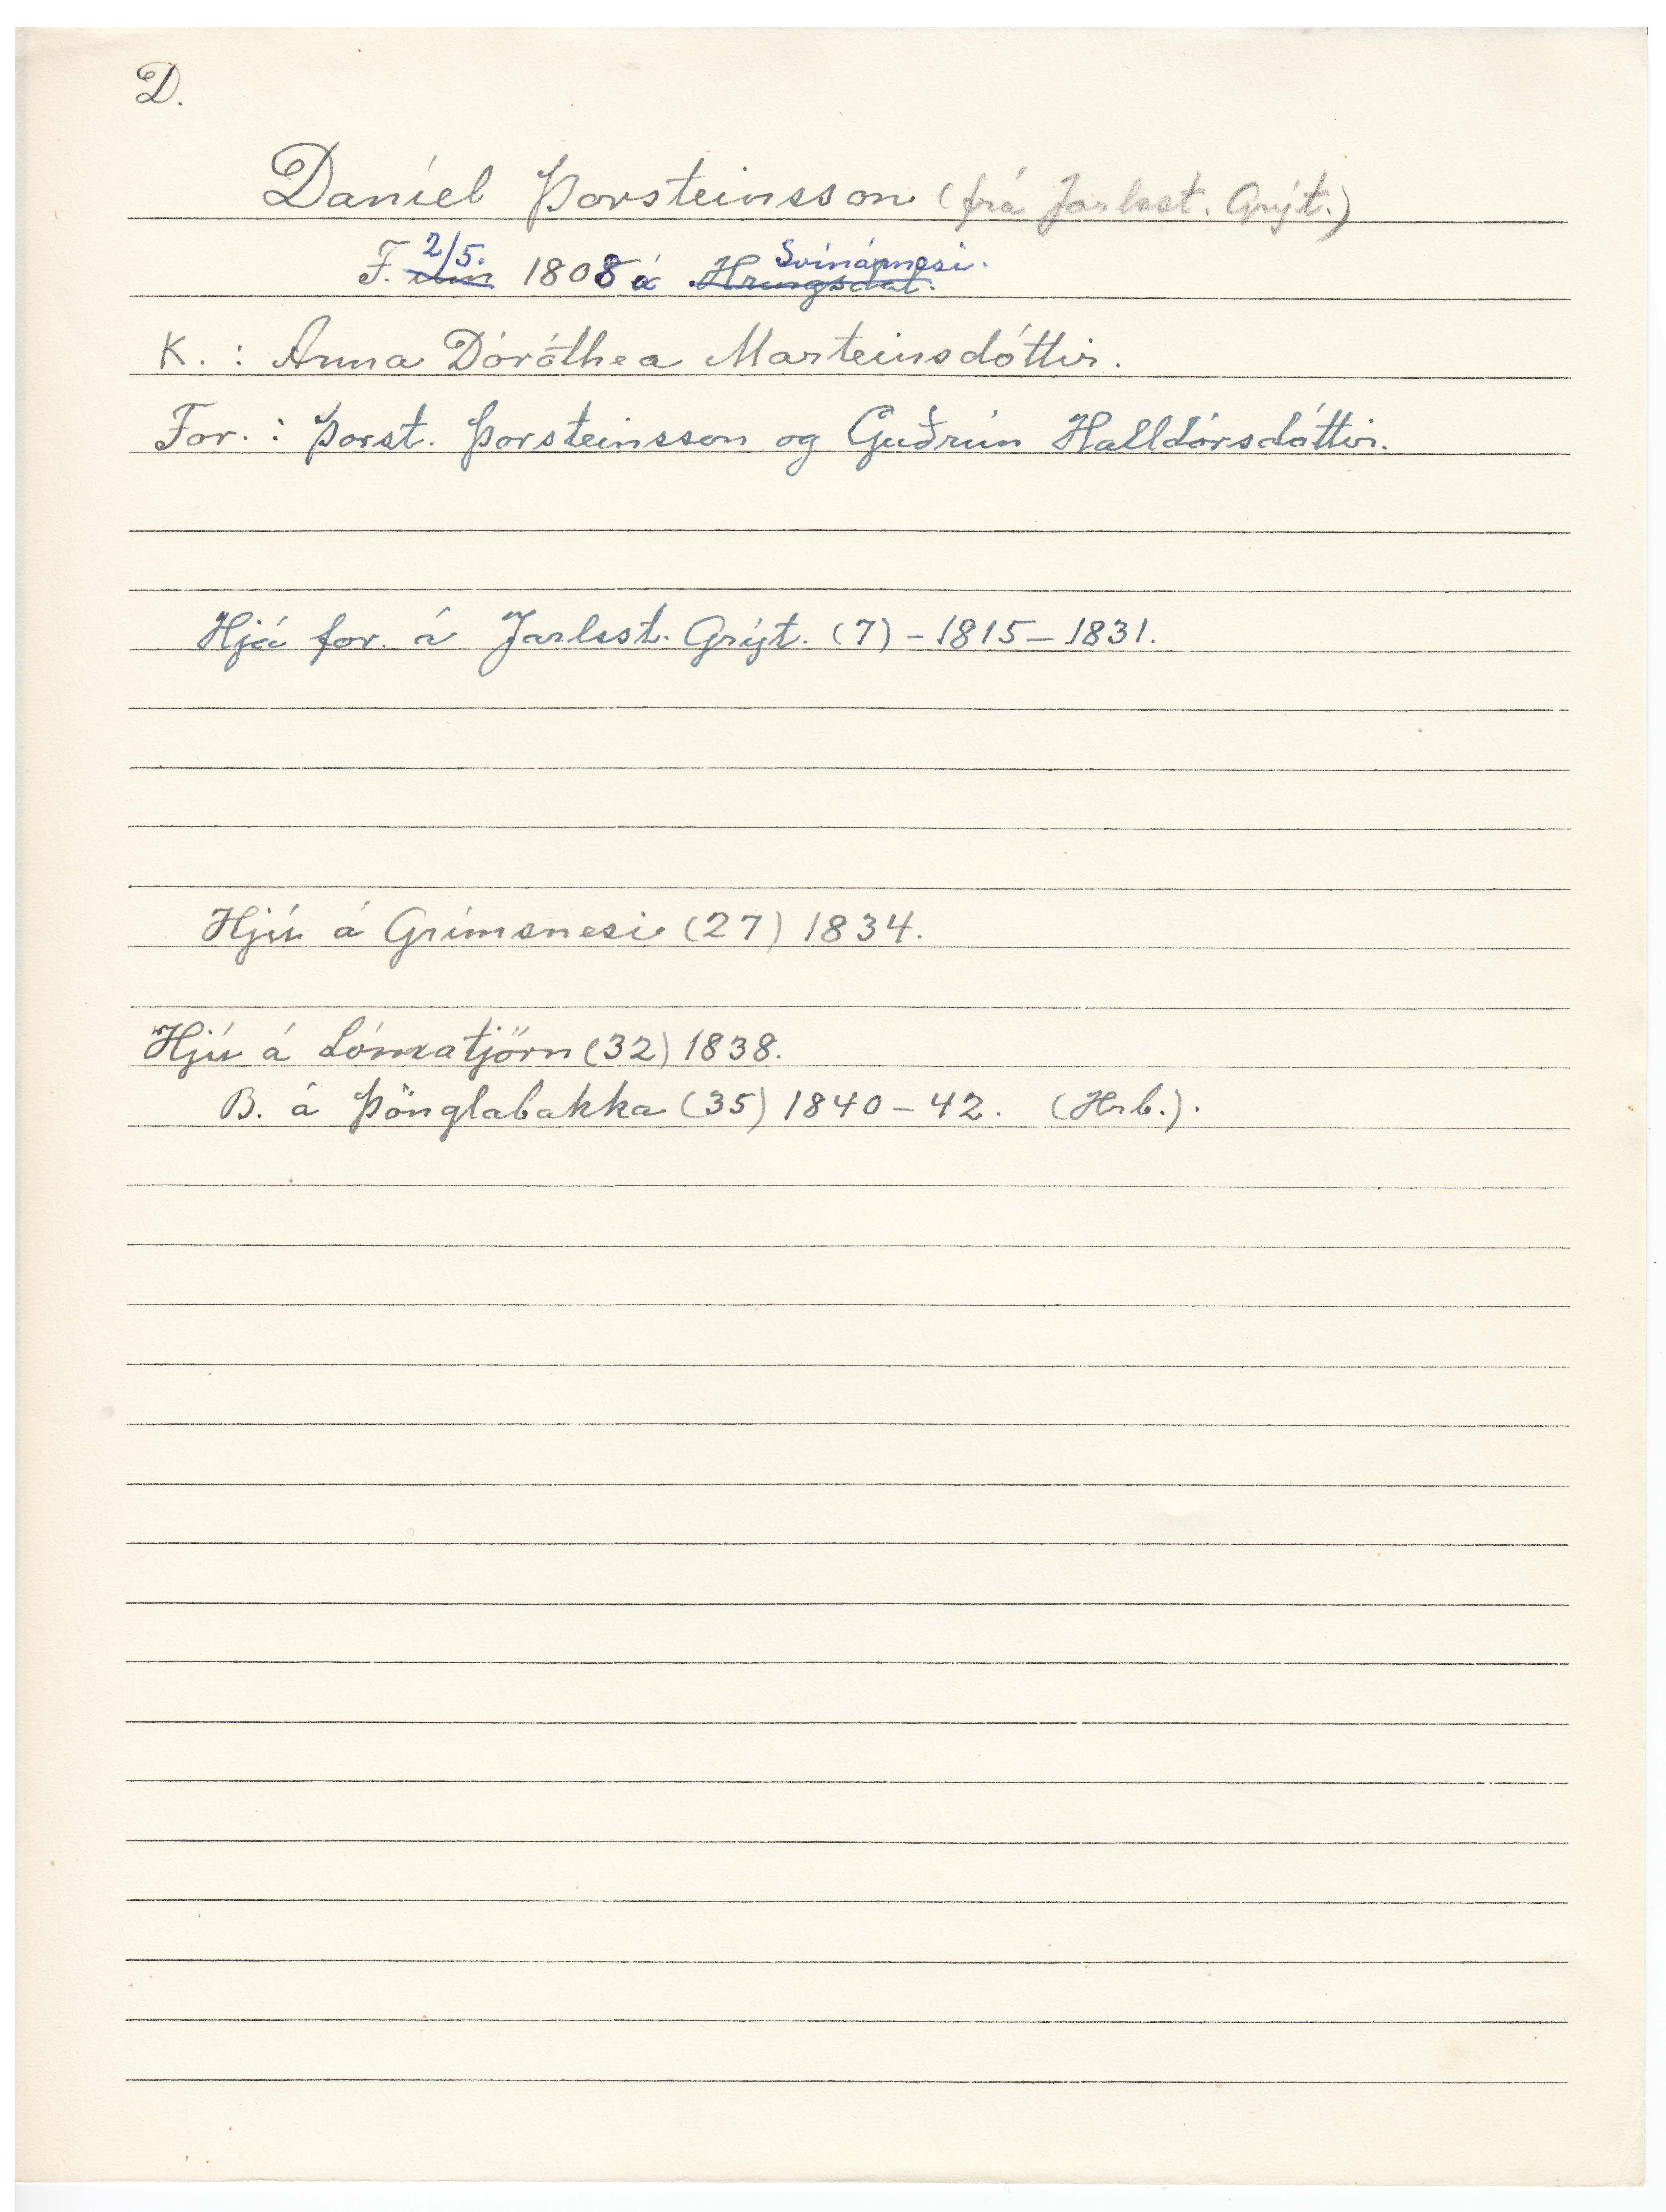 D.
Daníel Þorsteinsson (frá Jarlsst. Grýt.)
2/5. Svínárnesi.
F. um 1808 á Hringsdal.
K. : Anna Dóróthea Marteinsdóttir.
For. : Þorst. Þorsteinsson og Guðrún Halldórsdóttir.
Hjá for. á Jarlsst. Grýt. (7) – 1815 – 1831.
Hjú á Grímsnesi (27) 1834.
Hjú á Lómatjörn (32) 1838.
B. á Þönglabakka (35) 1840 – 42. (Hrb.).